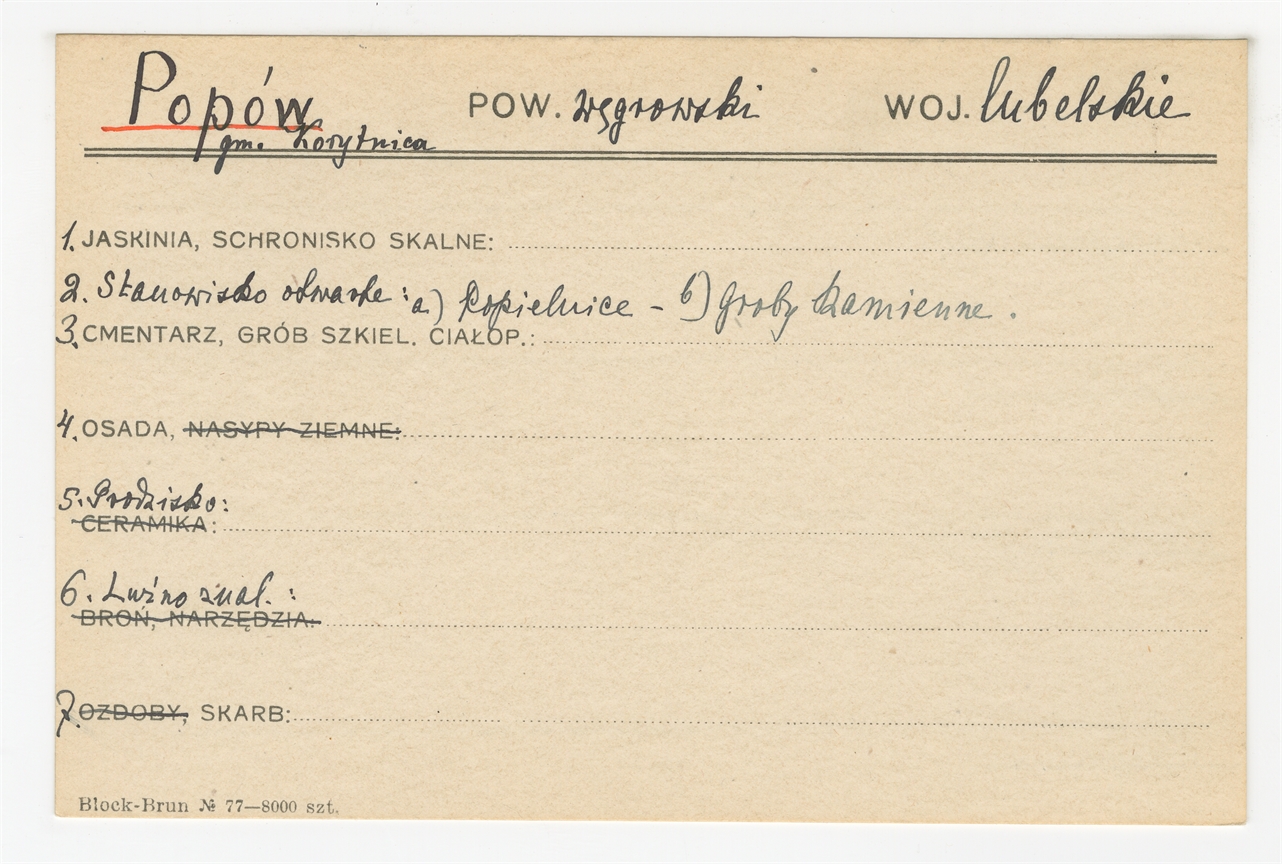 Popów POW. węgrowski WOJ. lubelskie
gm. Korytnica
1. JASKINIA, SCHRONISKO SKALNE:
2. Stanowisko otwarte: a) Popielnice - b) groby kamienne.
3. CMENTARZ, GRÓB SZKIEL. CIAŁOP.:
4. OSADA, NASYPY ZIEMNE:
5. Grodzisko:
CERAMIKA:
6. Luźno znal.:
BROŃ, NARZĘDZIA:
7. OZDOBY, SKARB:
Block-Brun № 77—8000 szt.